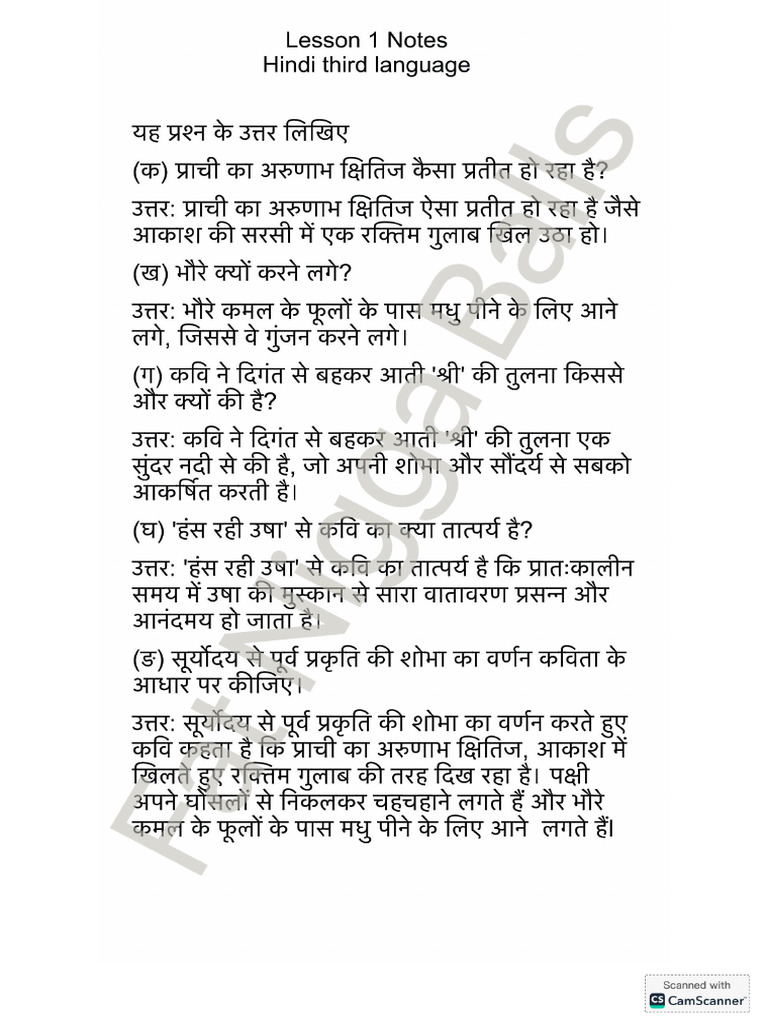 Lesson 1 Notes
Hindi third language
यह प्रश्न के उत्तर लिखिए
(क) प्राची का अरुणाभ क्षितिज कैसा प्रतीत हो रहा है?
उत्तर: प्राची का अरुणाभ क्षितिज ऐसा प्रतीत हो रहा है जैसे
आकाश की सरसी में एक रक्तिम गुलाब खिल उठा हो।
(ख) भौरे क्यों करने लगे?
उत्तर: भौरे कमल के फूलों के पास मधु पीने के लिए आने
लगे, जिससे वे गुंजन करने लगे।
(ग) कवि ने दिगंत से बहकर आती 'श्री' की तुलना किससे
और क्यों की है?
उत्तर: कवि ने दिगंत से बहकर आती 'श्री' की तुलना एक
सुंदर नदी से की है, जो अपनी शोभा और सौंदर्य से सबको
आकर्षित करती है।
(घ) 'हंस रही उषा' से कवि का क्या तात्पर्य है?
उत्तर: 'हंस रही उषा' से कवि का तात्पर्य है कि प्रातःकालीन
समय में उषा की मुस्कान से सारा वातावरण प्रसन्न और
आनंदमय हो जाता है।
(ङ) सूर्योदय से पूर्व प्रकृति की शोभा का वर्णन कविता के
आधार पर कीजिए।
उत्तर: सूर्योदय से पूर्व प्रकृति की शोभा का वर्णन करते हुए
कवि कहता है कि प्राची का अरुणाभ क्षितिज, आकाश में
खिलते हुए रक्तिम गुलाब की तरह दिख रहा है। पक्षी
अपने घोंसलों से निकलकर चहचहाने लगते हैं और भौरे
कमल के फूलों के पास मधु पीने के लिए आने  लगते हैं।
Fat Nigga Balls
Scanned with
CS CamScanner